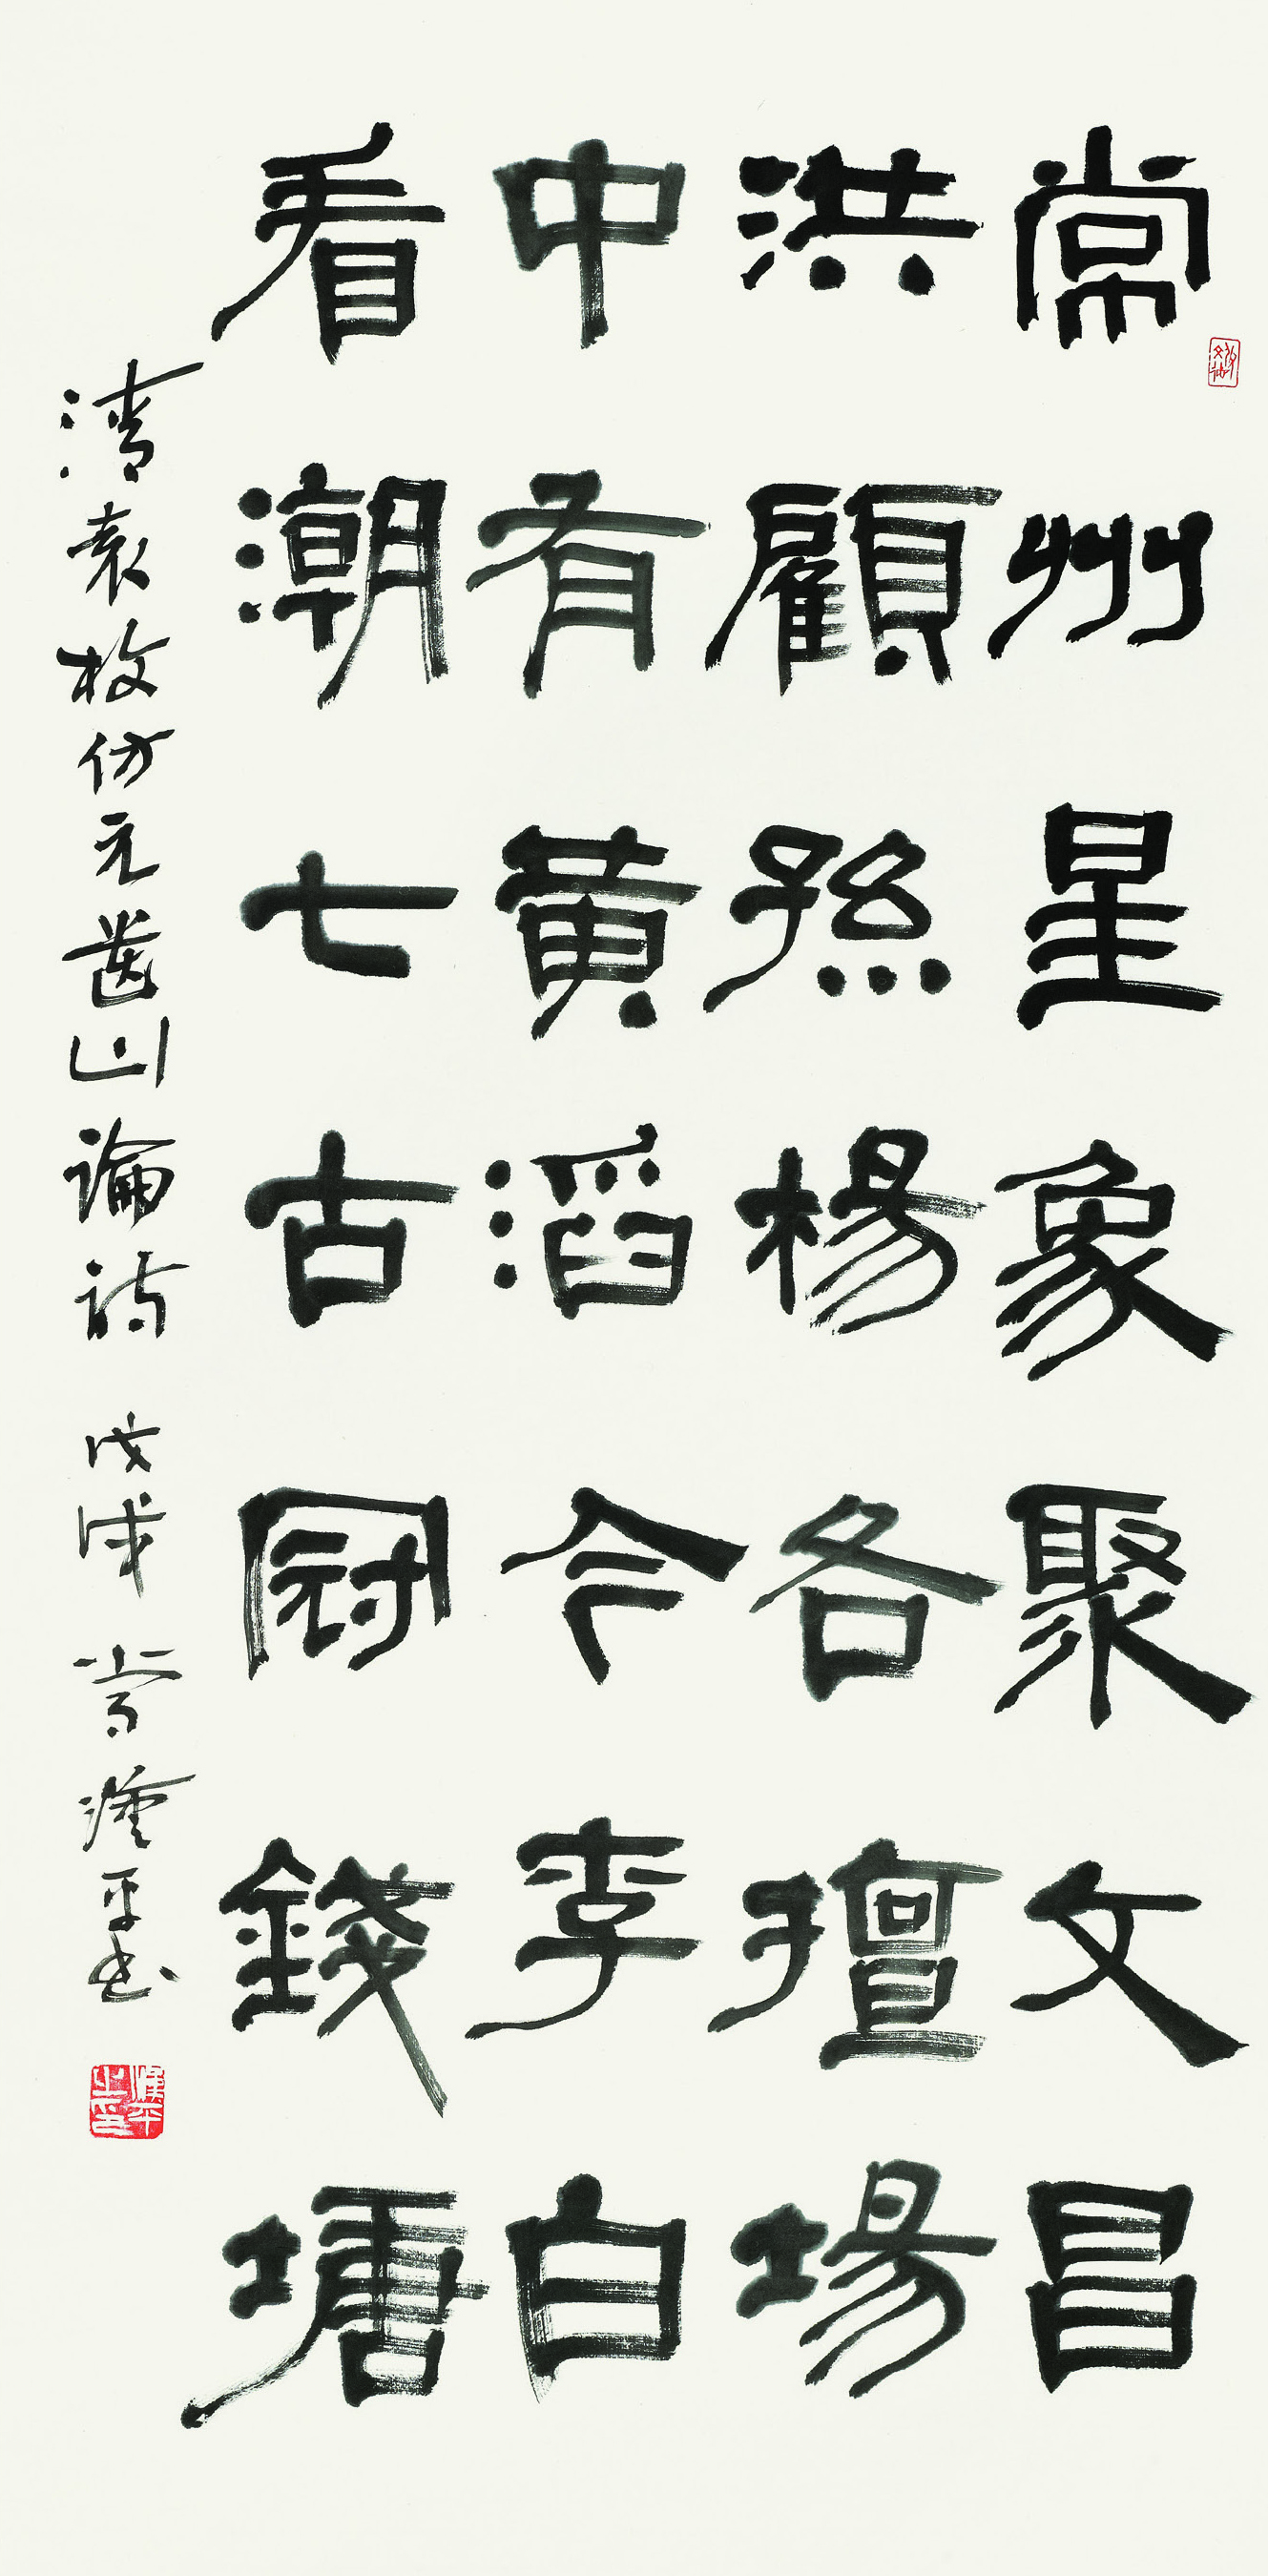 常州星象聚文昌
洪顧孫楊各擅場
中有黄滔今李白
看潮七古冠錢塘
清袁枚仿元遺山論詩 戊戌 常漢平书
漢平之印